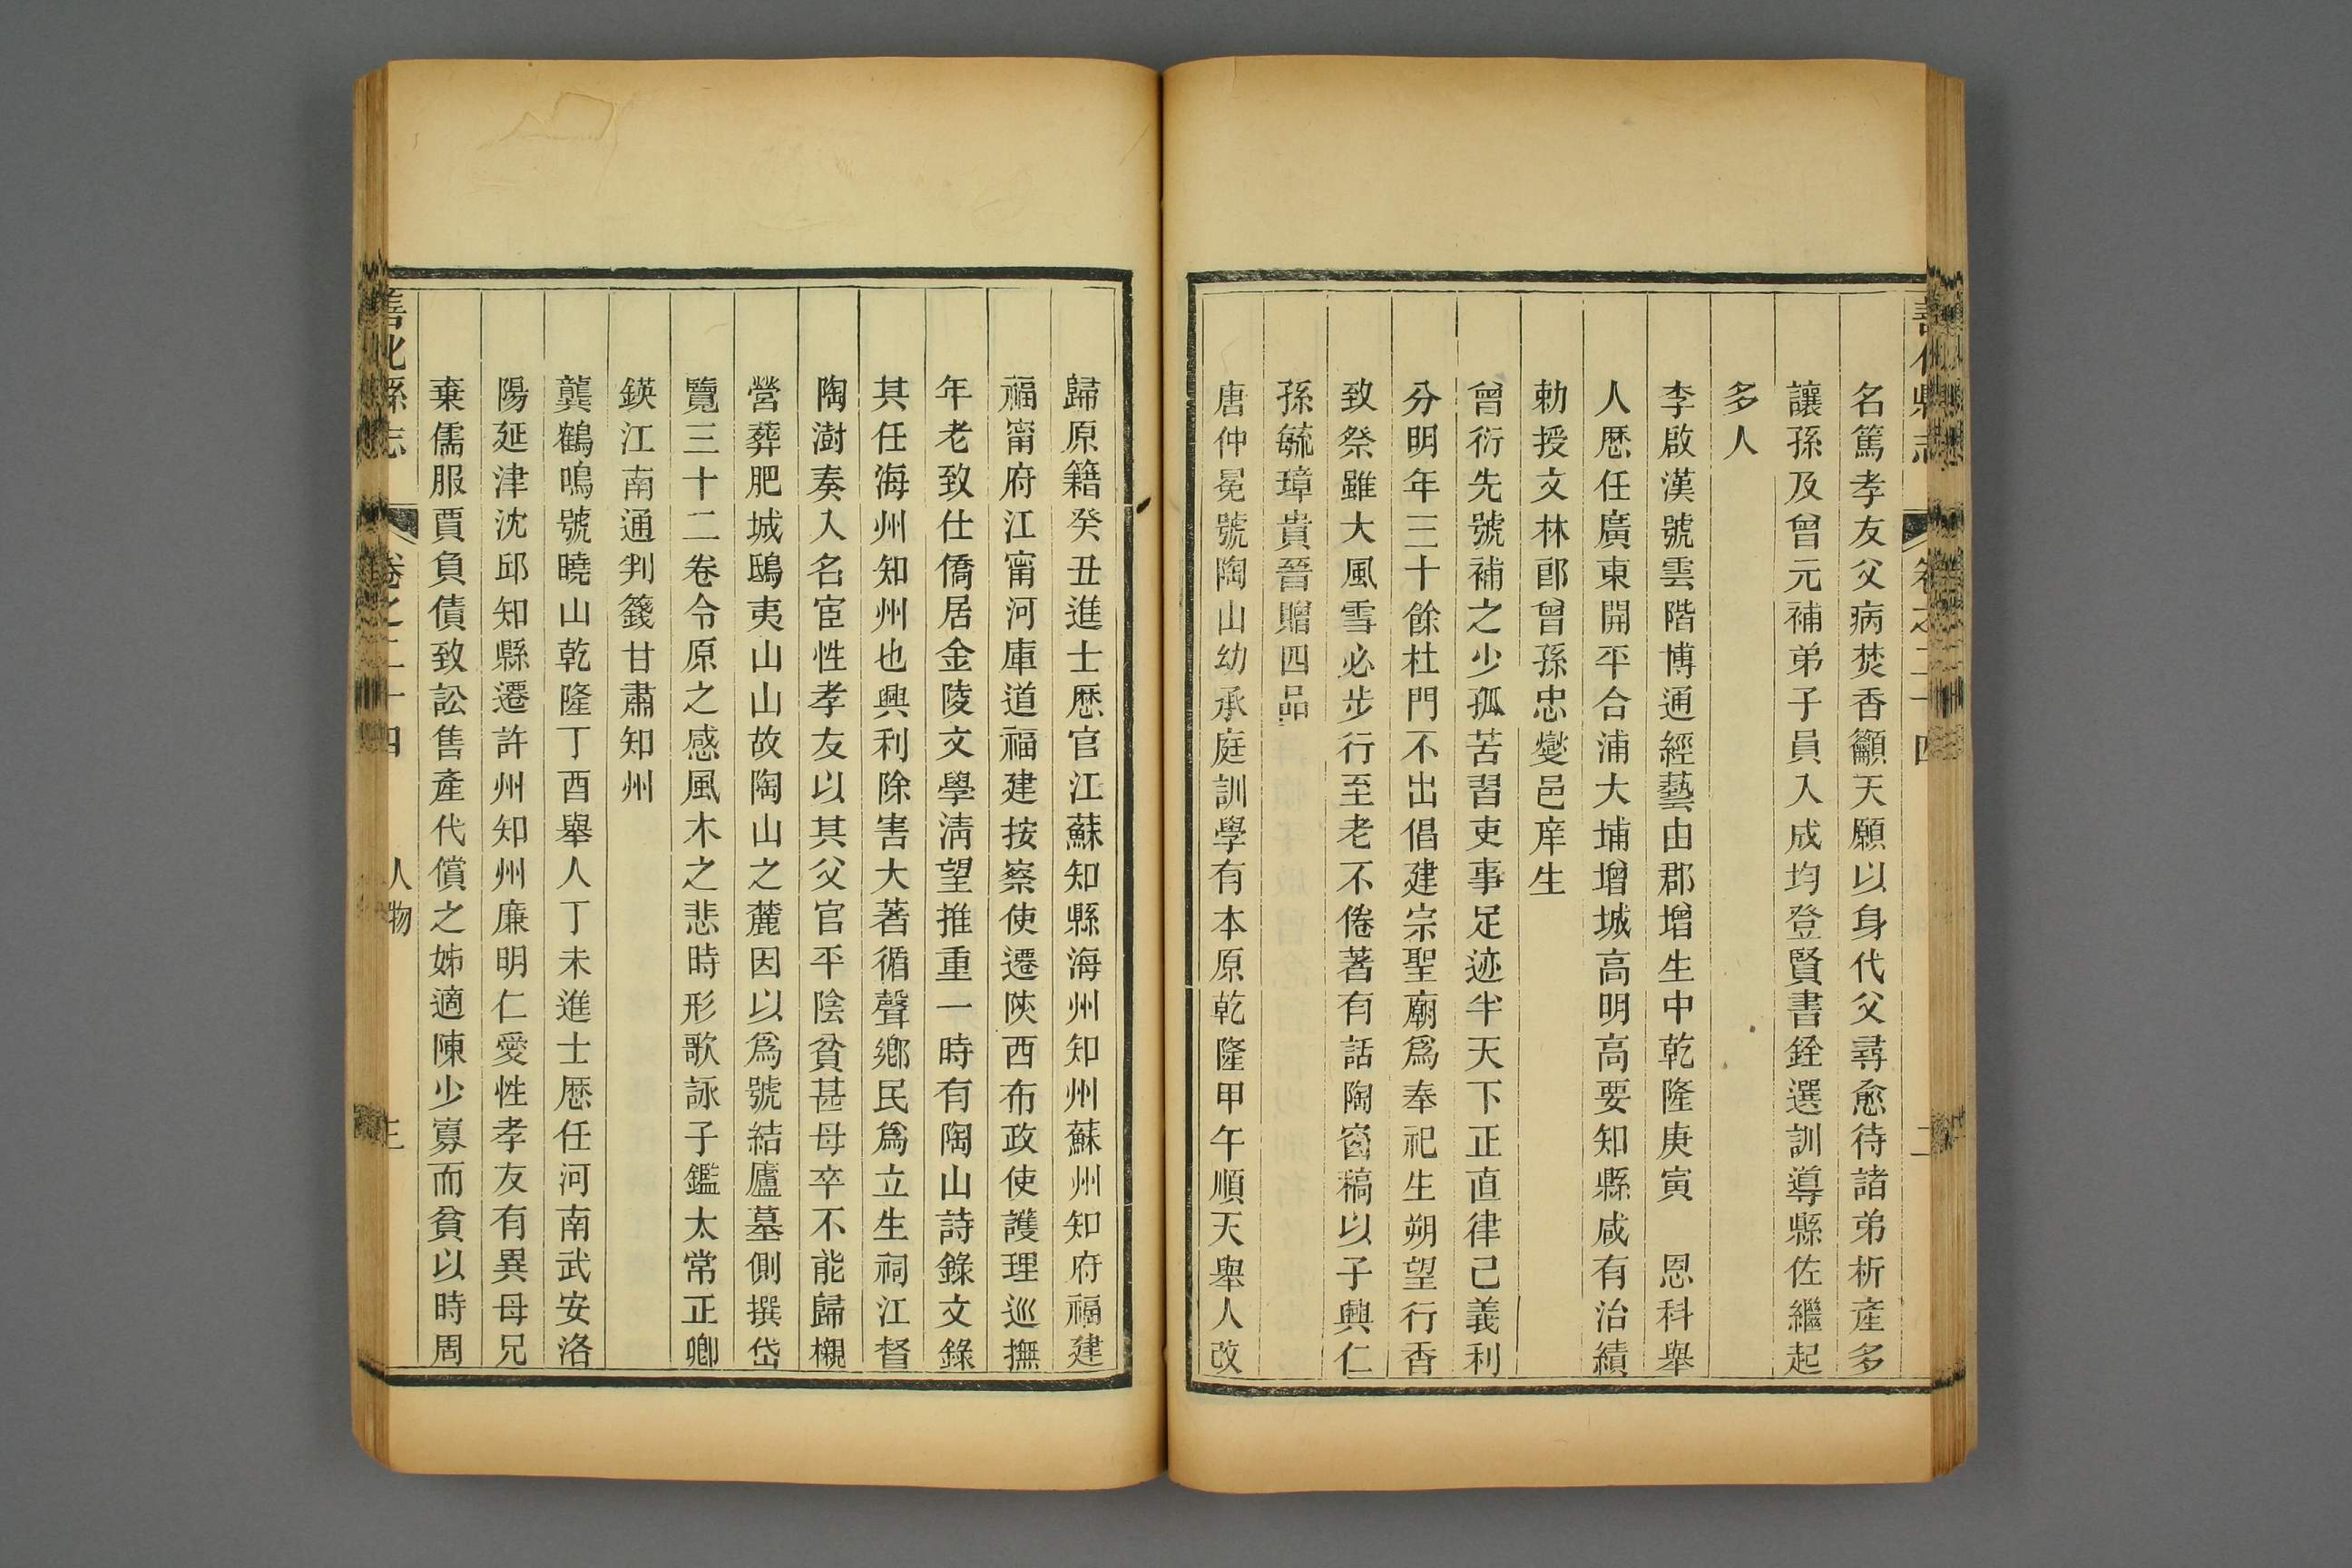 善化縣志 卷之二十四 二
名篤孝友父病焚香籲天願以身代父尋愈待諸弟析產多
讓孫及曾元補弟子員入成均登賢書銓選訓導縣佐繼起
多人
李啟漢號雲階博通經藝由郡增生中乾隆庚寅 恩科舉
人歷任廣東開平合浦大埔增城高明高要知縣咸有治績
勅授文林郎曾孫忠燮邑庠生
曾衍先號補之少孤苦習吏事足迹半天下正直律己義利
分明年三十餘杜門不出倡建宗聖廟爲奉祀生朔望行香
致祭雖大風雪必步行至老不倦著有話陶窗稿以子興仁
孫毓璋貴晉贈四品
唐仲冕號陶山幼承庭訓學有本原乾隆甲午順天舉人改
歸原籍癸丑進士歷官江蘇知縣海州知州蘇州知府福建
福甯府江甯河庫道福建按察使遷陝西布政使護理巡撫
年老致仕僑居金陵文學淸望推重一時有陶山詩錄文錄
其任海州知州也興利除害大著循聲鄉民爲立生祠江督
陶澍奏入名宦性孝友以其父官平陰貧甚母卒不能歸櫬
營葬肥城鴟夷山山故陶山之麓因以爲號結廬墓側撰岱
覽三十二卷令原之感風木之悲時形歌詠子鑑太常正卿
鍈江南通判籛甘肅知州
龔鶴鳴號曉山乾隆丁酉舉人丁未進士歷任河南武安洛
陽延津沈邱知縣遷許州知州廉明仁愛性孝友有異母兄
棄儒服賈負債致訟售產代償之姊適陳少寡而貧以時周
善化縣志 卷之二十四 人物 三